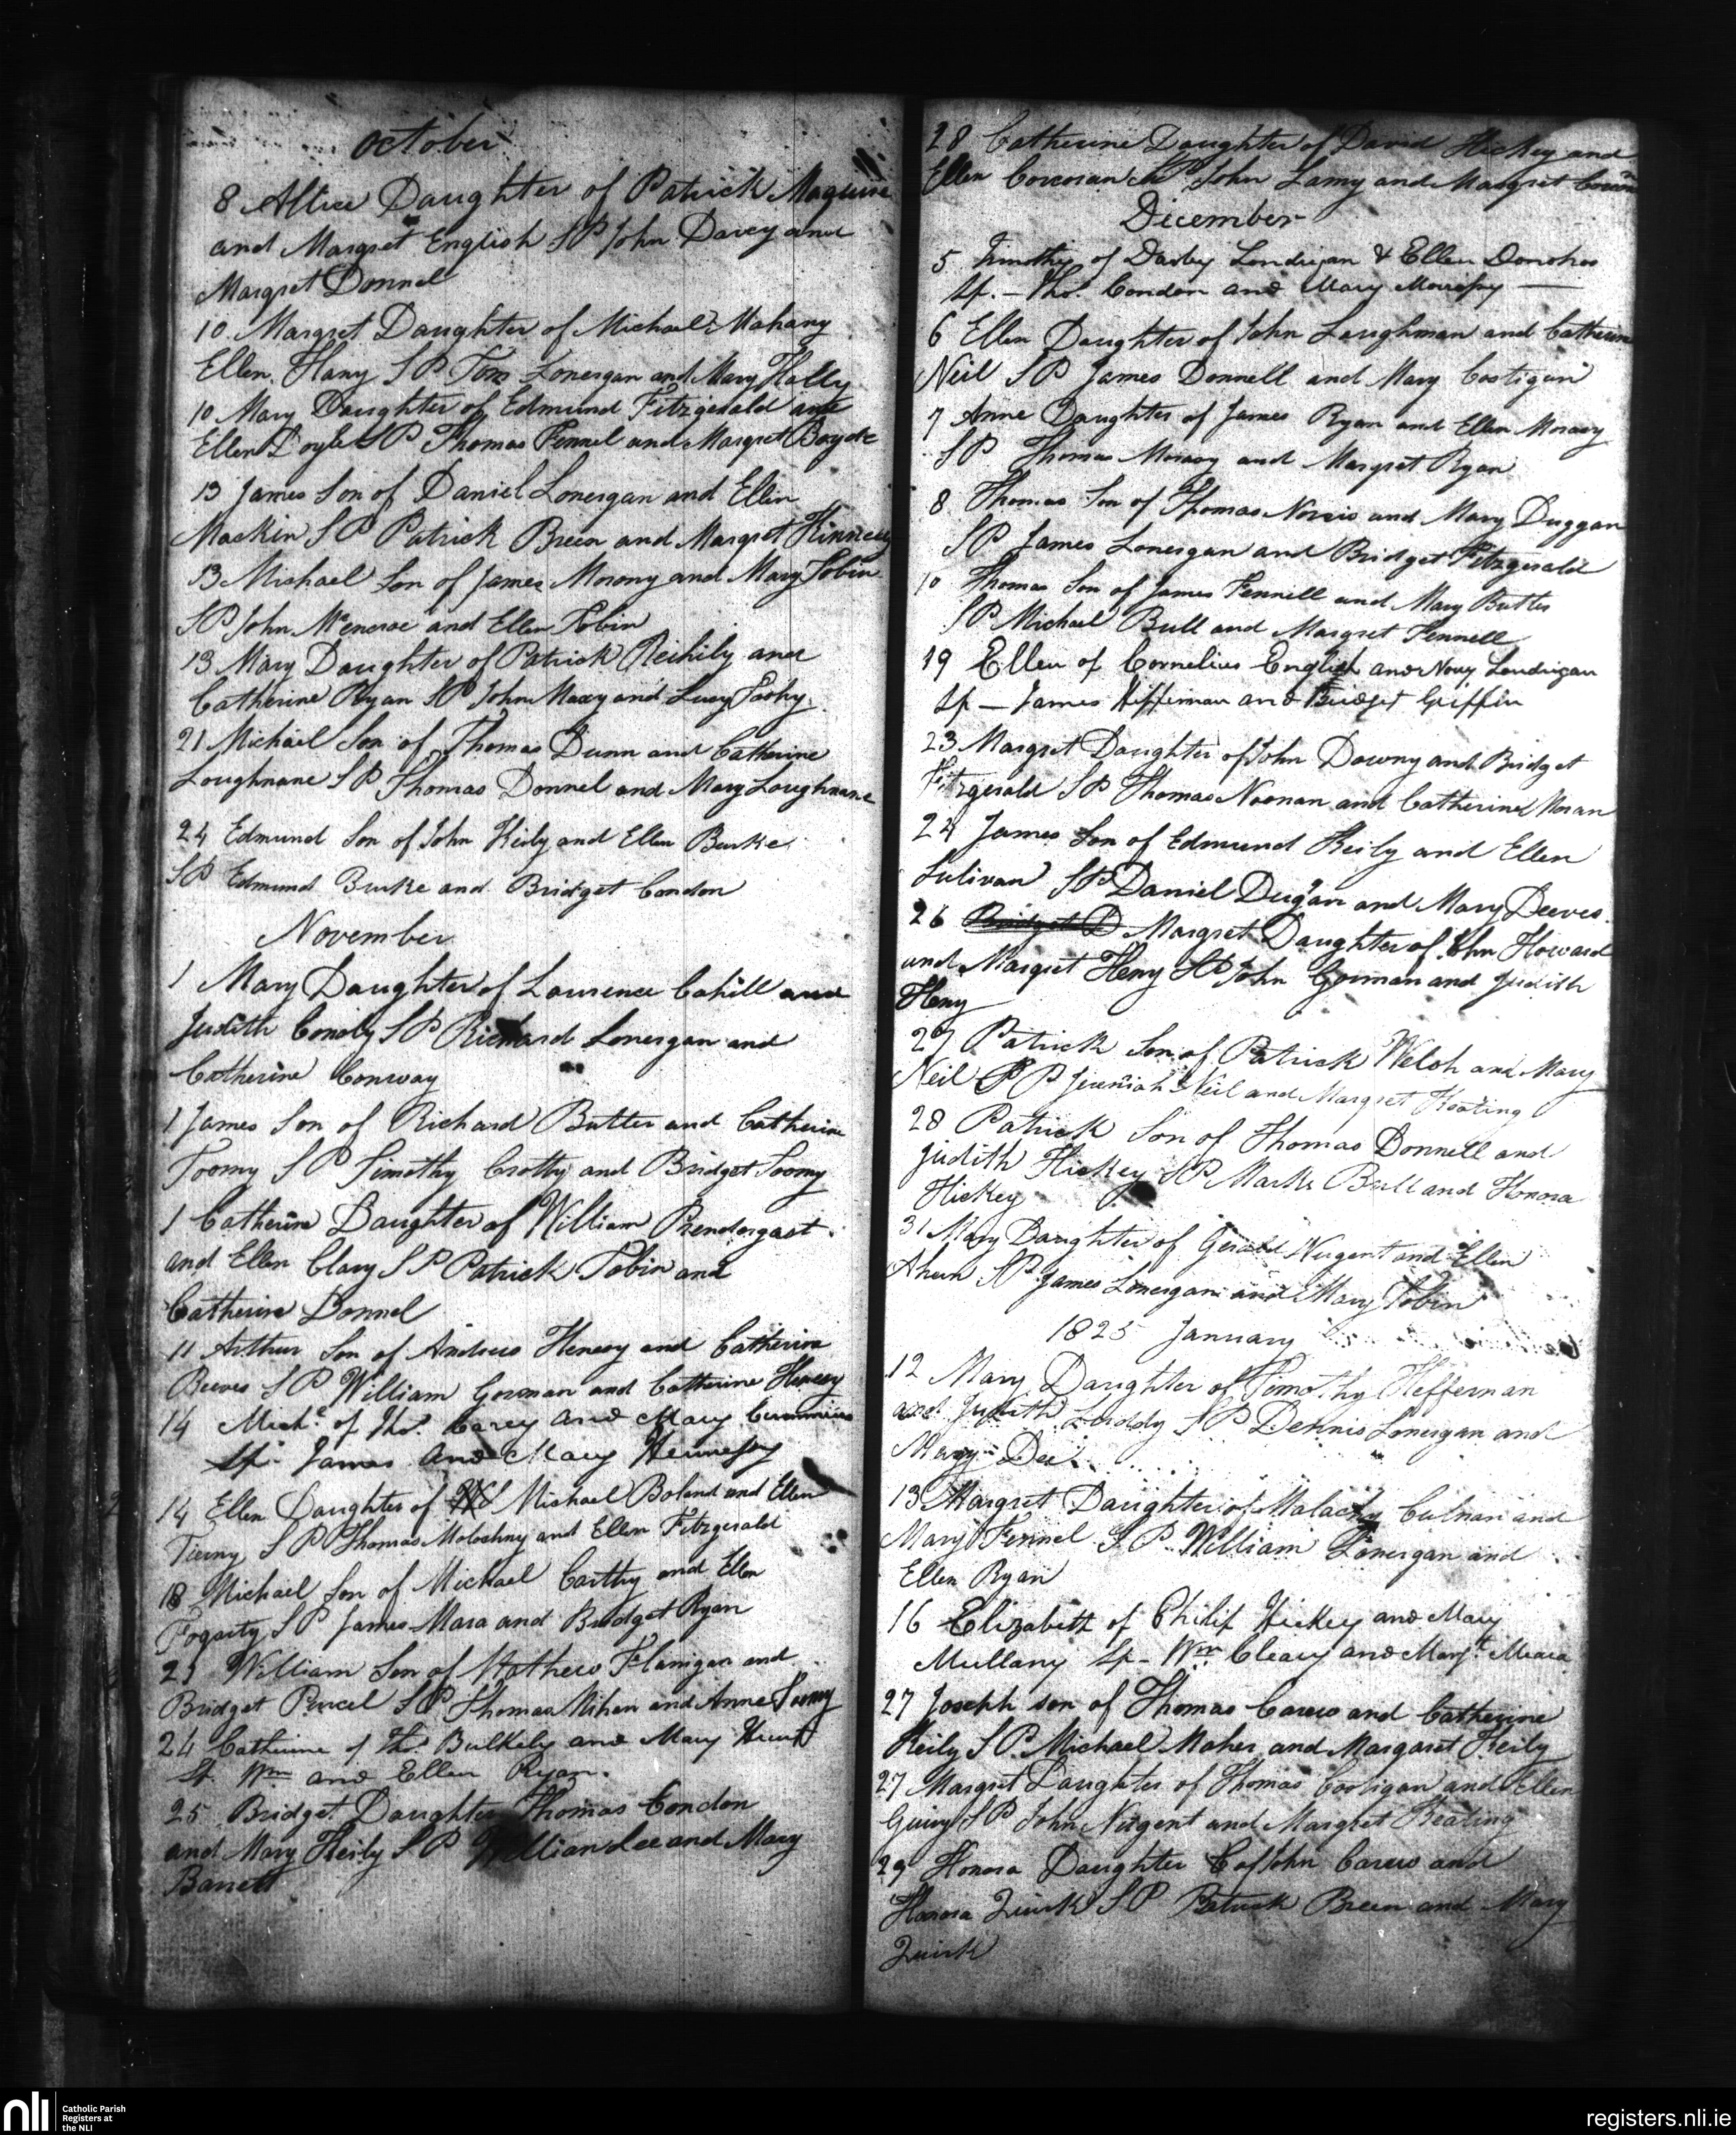 October
8 Allice Daughter of Patrick Maguire
and Margret English SP John Davey and
Margret Donnel
10 Margret Daughter of Michael Mahany
Ellen Hany SP Tom Lonergan and Mary Hally
10 Mary Daughter of Edmund Fitzgerald and
Ellen Doyle SP Thomas Fennel and Margret
13 James Son of Daniel Lonergan and Ellen
Mackin SP Patrick Breen and Margret
13 Michael Son of James Morony and Mary Tobin
SP John Mcencroe and Ellen Tobin
13 Mary Daughter of Patrick and
Catherine Ryan SP John and Lucy
21 Michael Son of Thomas Dunn and Catherine
Loughnane SP Thomas Donnel and Mary Loughnane
24 Edmund Son of John Keily and Ellen Burke
SP Edmund Burke and Bridget Condon
November
1 Mary Daughter of Laurence Cahill and
Judith SP Richard Lonergan and
Catherine Conway
1 James Son of Richard Butter and Catherine
Toomy SP Timothy Crotty and Bridget Toomy
1 Catherine Daughter of William Prendergast
and Ellen Clary SP Patrick Tobin and
Catherine Donnel
11 Arthur Son of Andrew Henesy and Catherine
Reeves SP William Gorman and Catherine Henesy
14 Michl. of Ths. Carey and Mary Cummins
Sp. James and Mary Hennessy
14 Ellen Daughter of Michael Boland and Ellen
Tierny SP Thomas and Ellen Fitzgerald
18 Michael Son of Michael Carthy and Ellen
Fogerty SP James Mara and Bridget Ryan
21 William Son of Mathew Flanigan and
Bridget Purcel SP Thomas Mihan and Anne Toomy
24 Catherine of Ths. Bulkely and Mary Hunt
Sp. Wm and Ellen Ryan.
25 Bridget Daughter Thomas Condon
and Mary Keily SP William Lee and Mary
Barrett
28 Catherine Daughter of David Hickey and
Ellen Corcoran SP John Lamy and Margret
December
5 Timothy of Darby Londrigan & Ellen Donohoe
Sp. - Thos. Condon and Mary Morrissy
6 Ellen Daughter of John Loughman and Catherine
Neil SP James Donnell and Mary Costigan
7 Anne Daughter of James Ryan and Ellen Morony
SP Thomas Morony and Margret Ryan
8 Thomas Son of Thomas Norris and Mary Duggan
SP James Lonergan and Bridget Fitzgerald
10 Thomas Son of James Fennell and Mary Butler
SP Michael Bull and Margret Fennell
19 Ellen of Cornelius English and Nory Londrigan
Sp - James Heffernan and Bridget Griffin
23 Margret Daughter of John Downy and Bridget
Fitzgerald SP Thomas Noonan and Catherine Moran
24 James Son of Edmund Keily and Ellen
Sulivan SP Daniel Dugan and Mary Reeves
26 Bridget D Margret Daughter of John Howard
and Margret Heny SP John Gorman and Judith
Heny
27 Patrick Son of Patrick Welsh and Mary
Neil SP Jeremiah Neil and Margret Keating
28 Patrick Son of Thomas Donnell and
Judith Hickey SP Marks Bull and Honora
Hickey
31 Mary Daughter of Gerald Nugent and Ellen
Ahern SP James Lonergan and Mary Tobin
1825 January
12 Mary Daughter of Timothy Heffernan
and Judith Luddy SP Dennis Lonergan and
Mary Dee
13 Margret Daughter of Malachy Culnan and
Mary Fennel SP William Lonergan and
Ellen Ryan
16 Elizabeth of Philip Hickey and Mary
Mullany Sp - Wm Cleary and Margt. Meara
27 Joseph son of Thomas Carew and Catherine
Keily SP Michael Maher and Margaret Keily
27 Margret Daughter of Thomas Costigan and Ellen
Guiry SP John Nugent and Margret Keating
29 Honora Daughter of John Carew and
Honora Quirk SP Patrick Breen and Mary
Quirk
nli Catholic Parish
Registers at
the NLI
registers.nli.ie